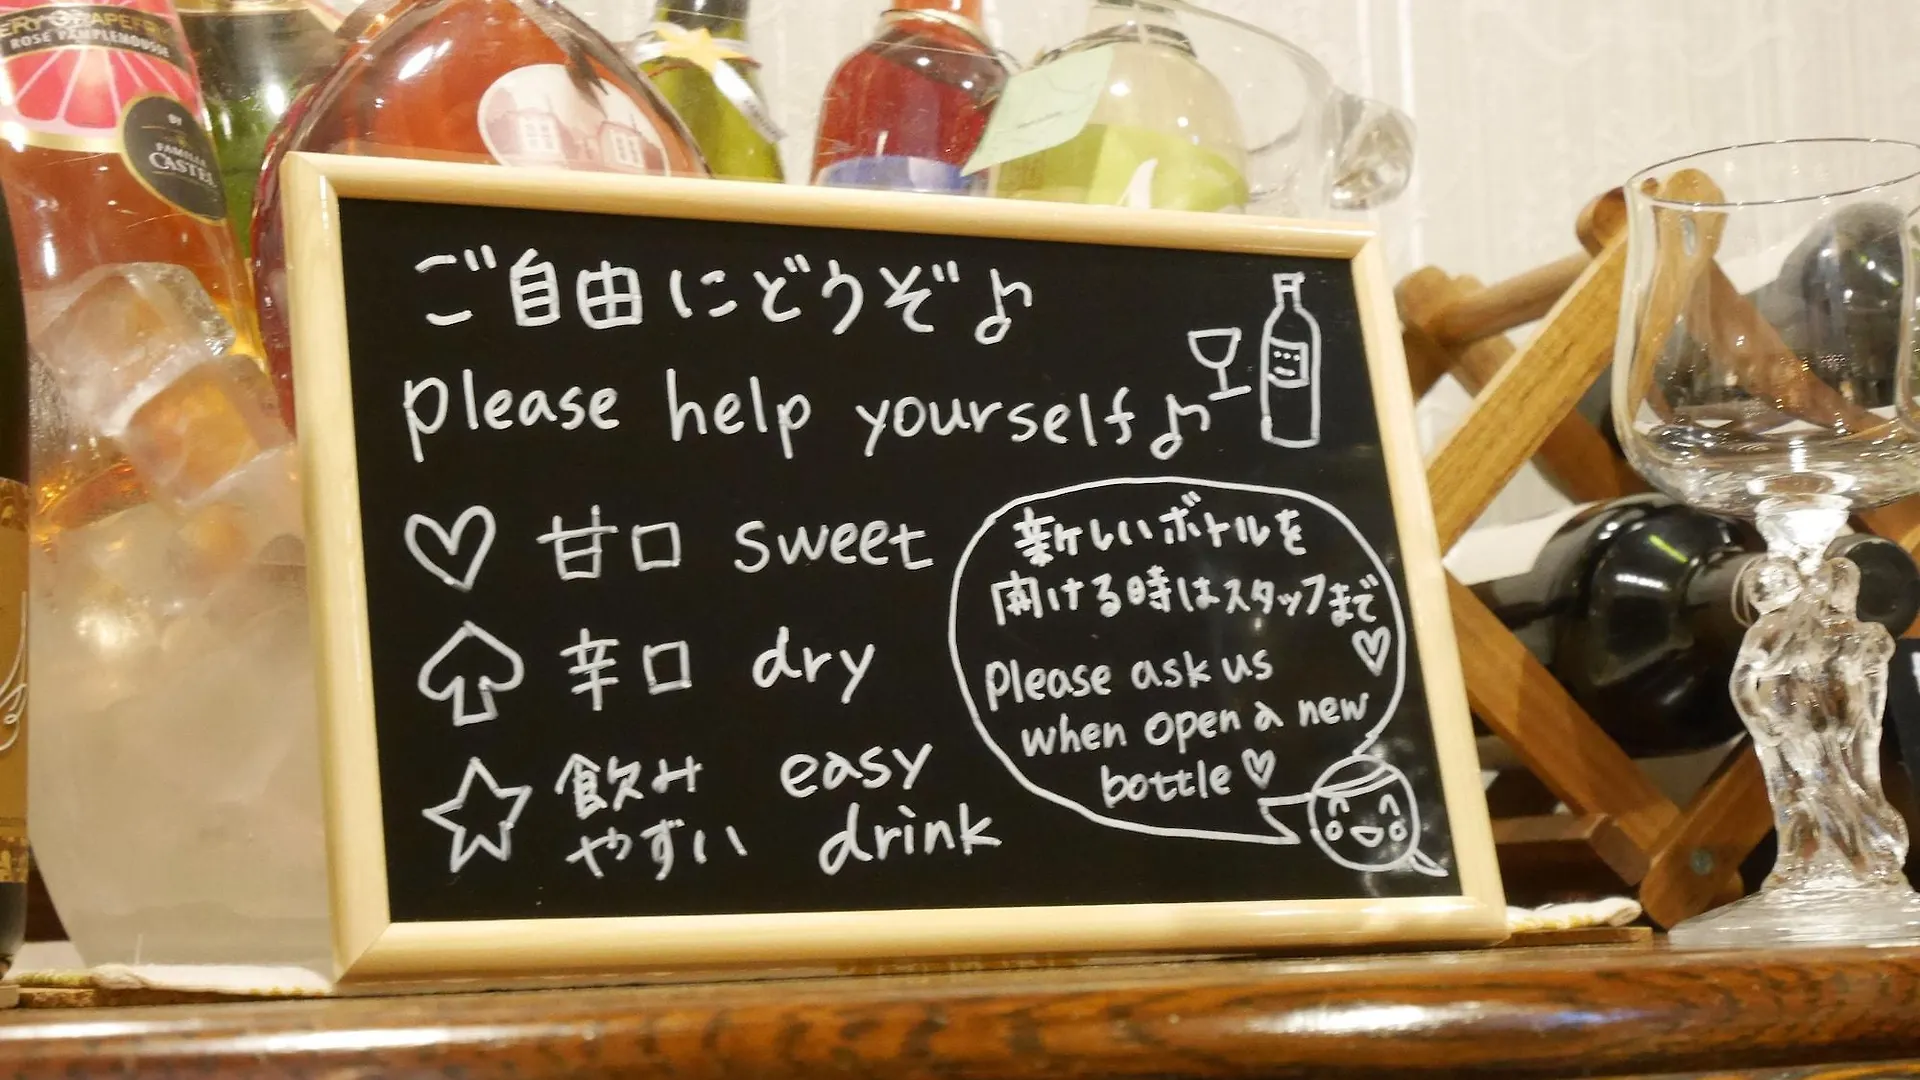 VERY GRAPEFRUIT
ROSÉ PAMPLEMOUSSE
BY
FAMILLE
CASTEL
ご自由にどうぞ♪
please help yourself♪
♡ 甘口 sweet
♤ 辛口 dry
☆ 飲み easy
やすい drink
新しいボトルを
開ける時はスタッフまで
♡
please ask us
when open a new
bottle♡